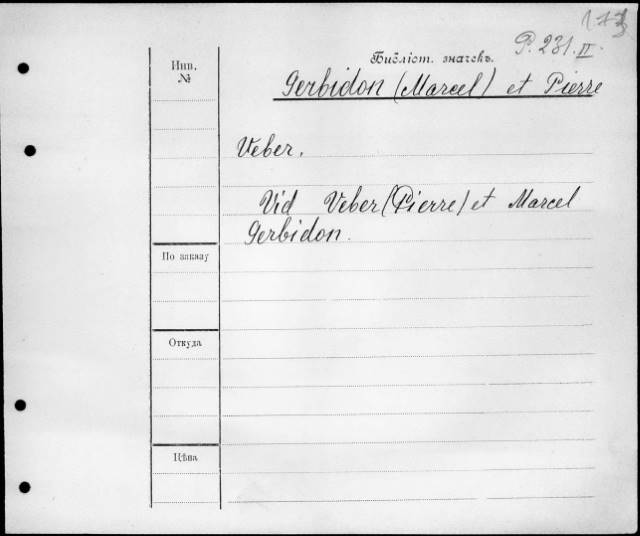 173
P. 231. II.
Библіот. значекъ.
Инв.
№
Gerbidon (Marcel) et Pierre
Veber.
Vid Veber (Pierre) et Marcel
Gerbidon.
По заказу
Откуда
Цѣна